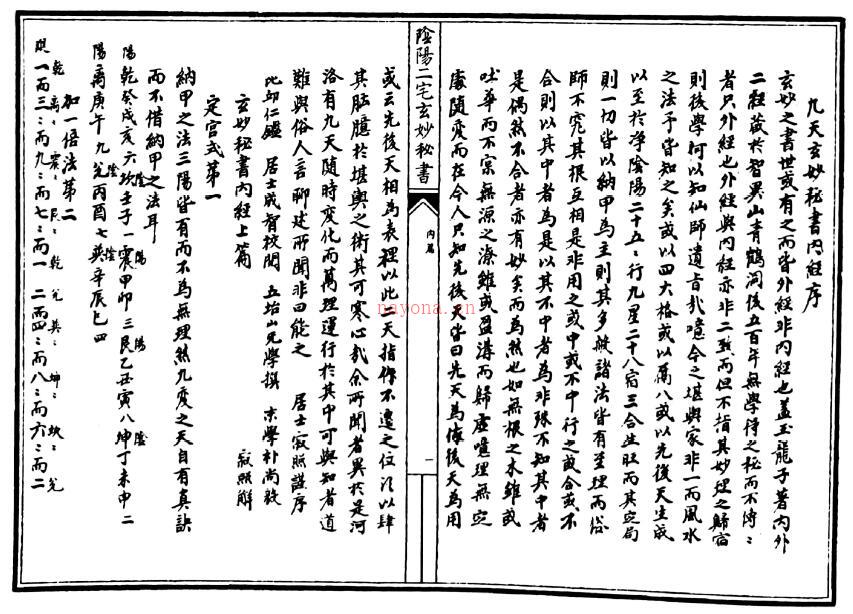 九天玄妙秘書内経序
玄妙之書世或有之而皆外経非内経也盖玉龍子著内外
二経蔵於智異山青鶴洞後五百年無學得之秘而不傳〻
者只外経也外経與内経亦非二致而但不指其妙理之歸宿
則後學何以知仙師遺旨哉噫今之堪輿家非一而風水
之法予皆知之矣或以四大格或以萬八或以先後天生成
以至於浄陰陽二十五〻行九星二十八宿三合生旺而其定局
則一切皆以納甲為主則其多岐諸法皆有至理而俗
師不究其根互相是非用之或中或不中行之或合或不
合則以其中者為是以其不中者為非殊不知其中者
是偶然不合者亦有妙矣而為然也如無根之木雖或
吐華而不宲無源之潦雖或盈溝而歸虚噫理無定
處随変而在今人只知先後天皆曰先天為体後天為用
陰陽二宅玄妙秘書
内篇
一
或云先後天相為表裡以此二天指作不遷之位
其肱臆於堪輿之術其可寒心哉余所聞者異於是河
洛有九天随時変化而萬理運行於其中可與知者道
難與俗人言聊述所聞非曰能之 居士寂照謹序
比邱仁鑑 居士成智校閲 五坮山无學撰 京學朴尚毅
玄妙秘書内経上篇 寂照解
定宮式第一
納甲之法三陽皆有而不為無理然九変之天自有真訣
而不借納甲之法耳
陽乾癸成亥六坎壬子一震甲卯三艮乙丑寅八坤丁未申二
陽离庚午九兌丙酉七巽辛辰巳四
加一倍法第二
乾〻离〻震〻艮〻乾 兌巽〻坤〻坎〻兌
一而三〻而九〻而七〻而一 二而四〻而八〻而六〻而二
nayona.cn